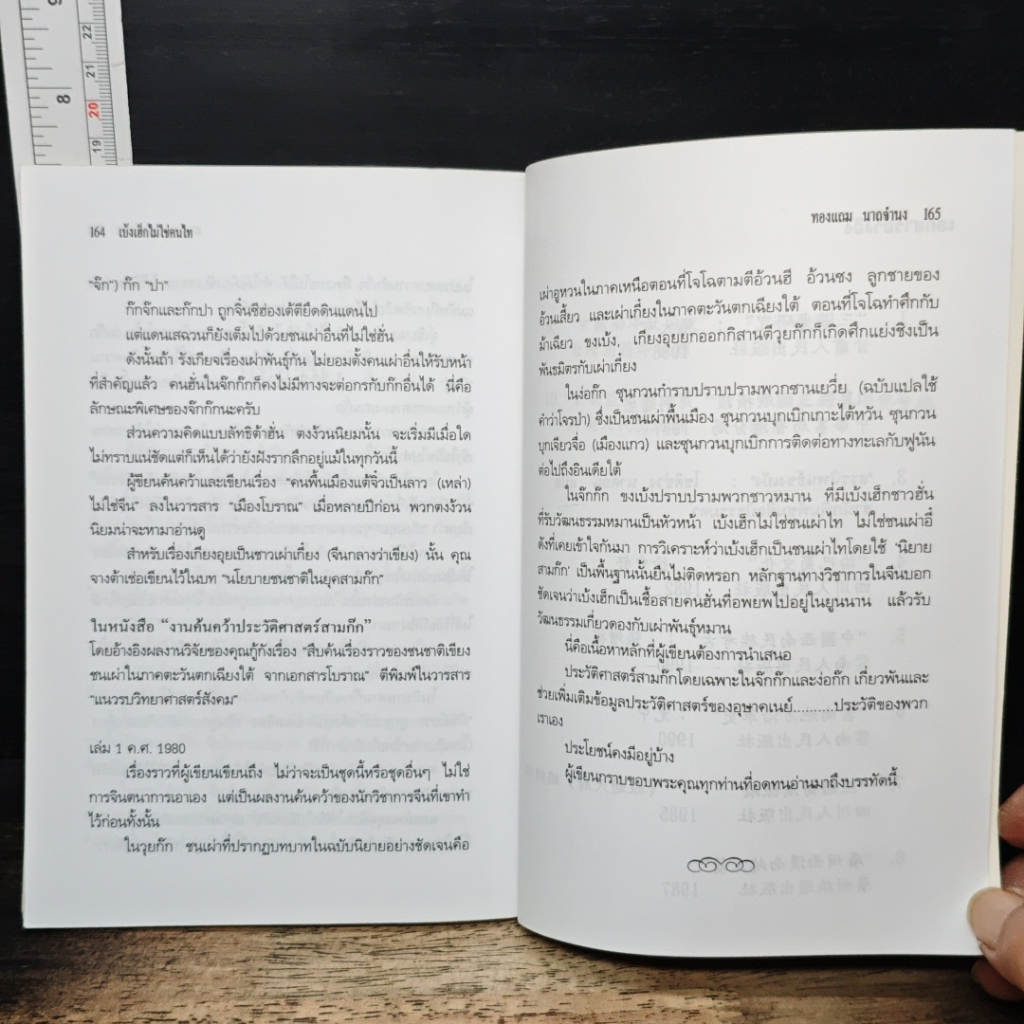 9
8
22
21
20
19
164 เบ้งเฮ็กไม่ใช่คนไท
"จ๊ก") ก๊ก "ปา"
ก๊กจ๊กและก๊กปา ถูกจิ๋นซีฮ่องเต้ตียึดดินแดนไป
แต่แดนเสฉวนก็ยังเต็มไปด้วยชนเผ่าอื่นที่ไม่ใช่ฮั่น
ดังนั้นถ้า รังเกียจเรื่องเผ่าพันธุ์กัน ไม่ยอมตั้งคนเผ่าอื่นให้รับหน้า
ที่สำคัญแล้ว คนฮั่นในจ๊กก๊กก็คงไม่มีทางจะต่อกรกับก๊กอื่นได้ นี่คือ
ลักษณะพิเศษของจ๊กก๊กนะครับ
ส่วนความคิดแบบลัทธิต้าฮั่น ตงง้วนนิยมนั้น จะเริ่มมีเมื่อใด
ไม่ทราบแน่ชัดแต่ก็เห็นได้ว่ายังฝังรากลึกอยู่แม้ในทุกวันนี้
ผู้ขียนค้นคว้าและเขียนเรื่อง "คนพื้นเมืองแต้จิ๋วเป็นลาว (เหล่า)
ไม่ใช่จีน" ลงในวารสาร "เมืองโบราณ" เมื่อหลายปีก่อน พวกตงง้วน
นิยมน่าจะหามาอ่านดู
สำหรับเรื่องเกียงอุยเป็นชาวเผ่าเกี๋ยง (จีนกลางว่าเชียง) นั้น คุณ
จางต้าเข่อเขียนไว้ในบท "นโยบายชนชาติในยุคสามก๊ก"
ในหนังสือ "งานค้นคว้าประวัติศาสตร์สามก๊ก"
โดยอ้างอิงผลงานวิจัยของคุณกู้กังเรื่อง "สืบค้นเรื่องราวของชนชาติเชียง
ชนเผ่าในภาคตะวันตกเฉียงใต้ จากเอกสารโบราณ" ตีพิมพ์ในวารสาร
"แนวรบวิทยาศาสตร์สังคม"
เล่ม 1 ค.ศ. 1980
เรื่องราวที่ผู้เขียนเขียนถึง ไม่ว่าจะเป็นชุดนี้หรือชุดอื่นๆ ไม่ใช่
การจินตนาการเอาเอง แต่เป็นผลงานค้นคว้าของนักวิชาการจีนที่เขาทำ
ไว้ก่อนทั้งนั้น
ในวุยก๊ก ชนเผ่าที่ปรากฏบทบาทในฉบับนิยายอย่างชัดเจนคือ
ทองแถม นาถจำนง 165
เผ่าอูหวนในภาคเหนือตอนที่โจโฉตามตีอ้วนฮี อ้วนซง ลูกชายของ
อ้วนเสี้ยว และเผ่าเกี๋ยงในภาคตะวันตกเฉียงใต้ ตอนที่โจโฉทำศึกกับ
ม้าเฉียว ขงเบ้ง, เกียงอุยยกออกกิสานตีวุยก๊กก็เกิดศึกแย่งชิงเป็น
พันธมิตรกับเผ่าเกี๋ยง
ในง่อก๊ก ซุนกวนกำราบปราบปรามพวกซานเยวี่ย (ฉบับแปลใช้
คำว่าโจรป่า) ซึ่งเป็นชนเผ่าพื้นเมือง ซุนกวนบุกเบิกเกาะไต้หวัน ซุนกวน
บุกเจียวจื่อ (เมืองแกว) และซุนกวนบุกเบิกการติดต่อทางทะเลกับฟูนัน
ต่อไปถึงอินเดียใต้
ในจ๊กก๊ก ขงเบ้งปราบปรามพวกชาวหมาน ที่มีเบ้งเฮ็กชาวฮั่น
ที่รับวัฒนธรรมหมานเป็นหัวหน้า เบ้งเฮ็กไม่ใช่ชนเผ่าไท ไม่ใช่ชนเผ่าอี๋
ดังที่เคยเข้าใจกันมา การวิเคราะห์ว่าเบ้งเฮ็กเป็นชนเผ่าไทโดยใช้ 'นิยาย
สามก๊ก' เป็นพื้นฐานนั้นยืนไม่ติดหรอก หลักฐานทางวิชาการในจีนบอก
ชัดเจนว่าเบ้งเฮ็กเป็นเชื้อสายคนฮั่นที่อพยพไปอยู่ในยูนนาน แล้วรับ
วัฒนธรรมเกี่ยวดองกับเผ่าพันธุ์หมาน
นี่คือเนื้อหาหลักที่ผู้เขียนต้องการนำเสนอ
ประวัติศาสตร์สามก๊กโดยเฉพาะในจ๊กก๊กและง่อก๊ก เกี่ยวพันและ
ช่วยเพิ่มเติมข้อมูลประวัติศาสตร์ของอุษาคเนย์..........ประวัติของพวก
เราเอง
ประโยชน์คงมีอยู่บ้าง
ผู้เขียนกราบขอบพระคุณทุกท่านที่อดทนอ่านมาถึงบรรทัดนี้